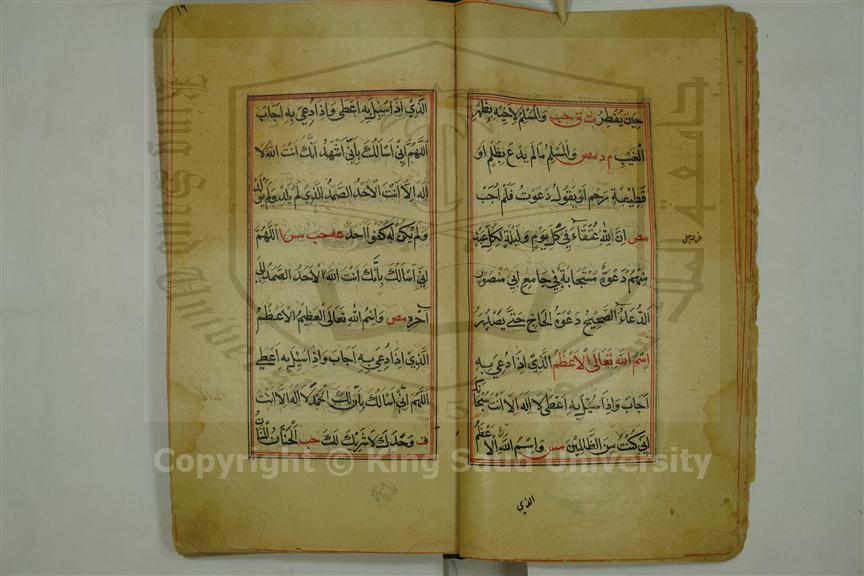 حين يفطر ت ق حب والمسلم لاخيه بظهر
الغيب م د مص والمسلم مالم يدع بظلم او
قطيعة رحم او يقول دعوت فلم اجب
مص ان لله عتقاء في كل يوم وليلة لكل عبد
منهم دعوة مستجابة في جامع ابي منصور
الدعاء الصحيح دعوة الحاج حتى يصدر
اسم الله تعالى الاعظم الذي اذا دعي به
اجاب واذا سئل به اعطى لا اله الا انت سبحانك
اني كنت من الظالمين مس واسم الله الاعظم
الذي
١٦
الذي اذا سئل به اعطى واذا دعي به اجاب
اللهم اني اسالك باني اشهد انك انت الله لا
اله الا انت الاحد الصمد الذي لم يلد ولم يولد
ولم يكن له كفوا احد عه حب مس ا اللهم
اني اسالك بانك انت الله الاحد الصمد الى
آخره مص واسم الله تعالى العظيم الاعظم
الذي اذا دعي به اجاب واذا سئل به اعطي
اللهم اني اسالك بان لك الحمد لا اله الا انت
وحدك لا شريك لك حب الحنان المنان
Copyright © King Saud University
King Saud University
جامعة الملك سعود